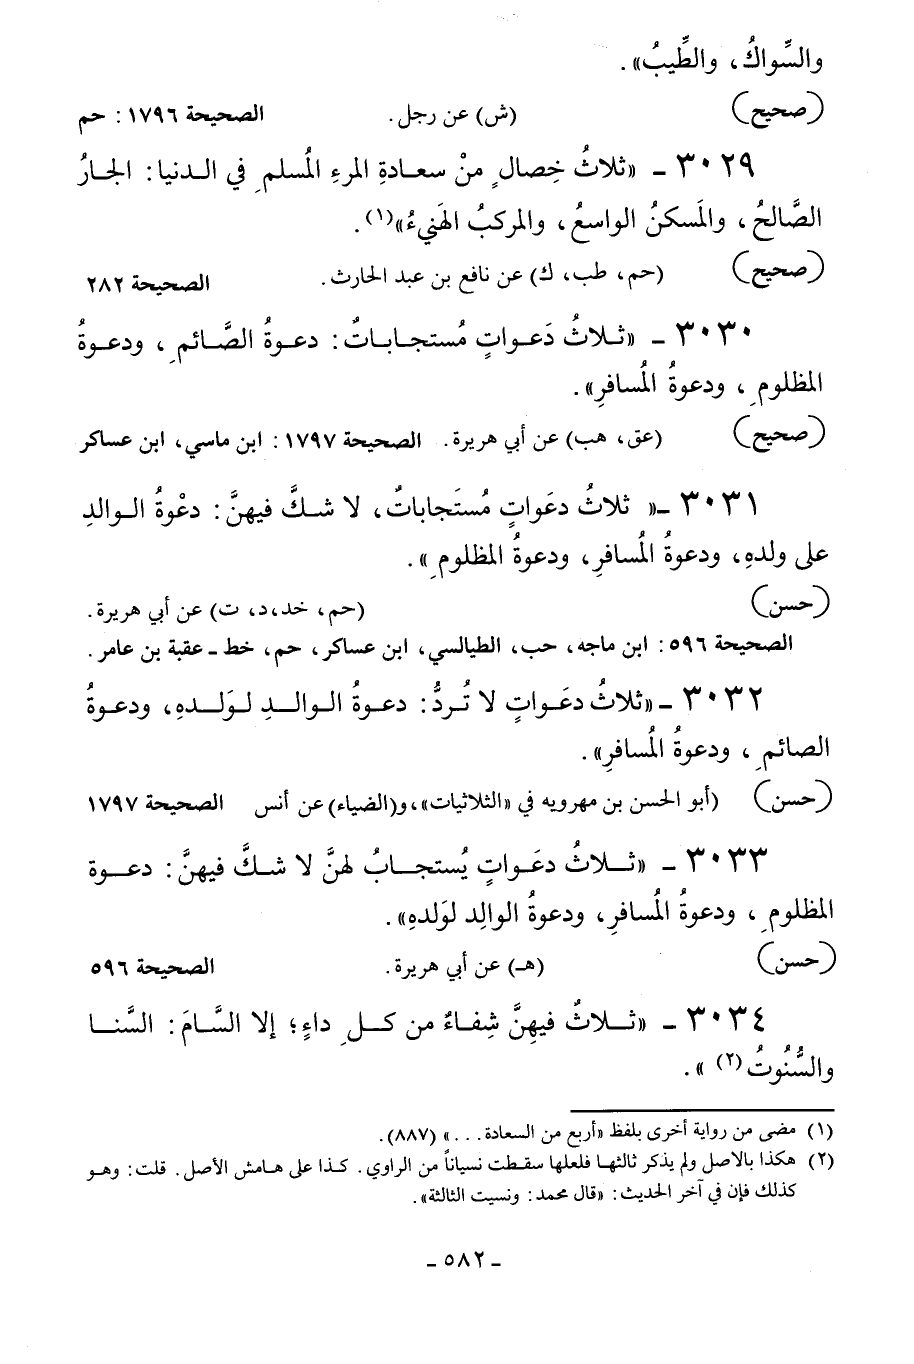 والسِّواكُ، والطِّيبُ».
(صحيح) (ش) عن رجل. الصحيحة ١٧٩٦: حم
٣٠٢٩ ـ «ثلاثُ خِصالٍ منْ سعادةِ المرءِ المُسلمِ في الدنيا: الجارُ
الصَّالحُ، والمَسكنُ الواسعُ، والمركبُ الهَنيءُ»(١).
(صحيح) (حم، طب، ك) عن نافع بن عبد الحارث. الصحيحة ٢٨٢
٣٠٣٠ ـ «ثلاثُ دَعواتٍ مُستجاباتٌ: دعوةُ الصَّائمِ، ودعوةُ
المظلومِ، ودعوةُ المُسافرِ».
(صحيح) (عق، هب) عن أبي هريرة. الصحيحة ١٧٩٧: ابن ماسي، ابن عساكر
٣٠٣١ ـ« ثلاثُ دعَواتٍ مُستَجاباتٌ، لا شكَّ فيهنَّ: دعْوةُ الوالدِ
على ولدهِ، ودعوةُ المُسافرِ، ودعوةُ المظلومِ».
(حسن) (حم، خد،د، ت) عن أبي هريرة.
الصحيحة ٥٩٦: ابن ماجه، حب، الطيالسي، ابن عساكر، حم، خط ـ عقبة بن عامر.
٣٠٣٢ ـ «ثلاثُ دعَواتٍ لا تُردُّ: دعوةُ الوالدِ لوَلدهِ، ودعوةُ
الصائمِ، ودعوةُ المُسافرِ».
(حسن) (أبو الحسن بن مهرويه في «الثلاثيات»،و(الضياء) عن أنس الصحيحة ١٧٩٧
٣٠٣٣ ـ «ثلاثُ دعَواتٍ يُستجابُ لهنَّ لا شكَّ فيهنَّ: دعوة
المظلومِ، ودعوةُ المُسافرِ، ودعوةُ الوالِدِ لوَلدهِ».
(حسن) (هـ) عن أبي هريرة. الصحيحة ٥٩٦
٣٠٣٤ ـ «ثلاثٌ فيهِنَّ شِفاءٌ من كلِ داءٍ؛ إلا السَّامَ: السَّنا
والسُّنُوتُ(٢) ».
(١) مضى من رواية أخرى بلفظ «أربع من السعادة...» (٨٨٧).
(٢) هكذا بالاصل ولم يذكر ثالثها فلعلها سقطت نسياناً من الراوي. كذا على هامش الأصل. قلت: وهو
كذلك فإن في آخر الحديث: «قال محمد: ونسيت الثالثة».
ـ ٥٨٢ ـ